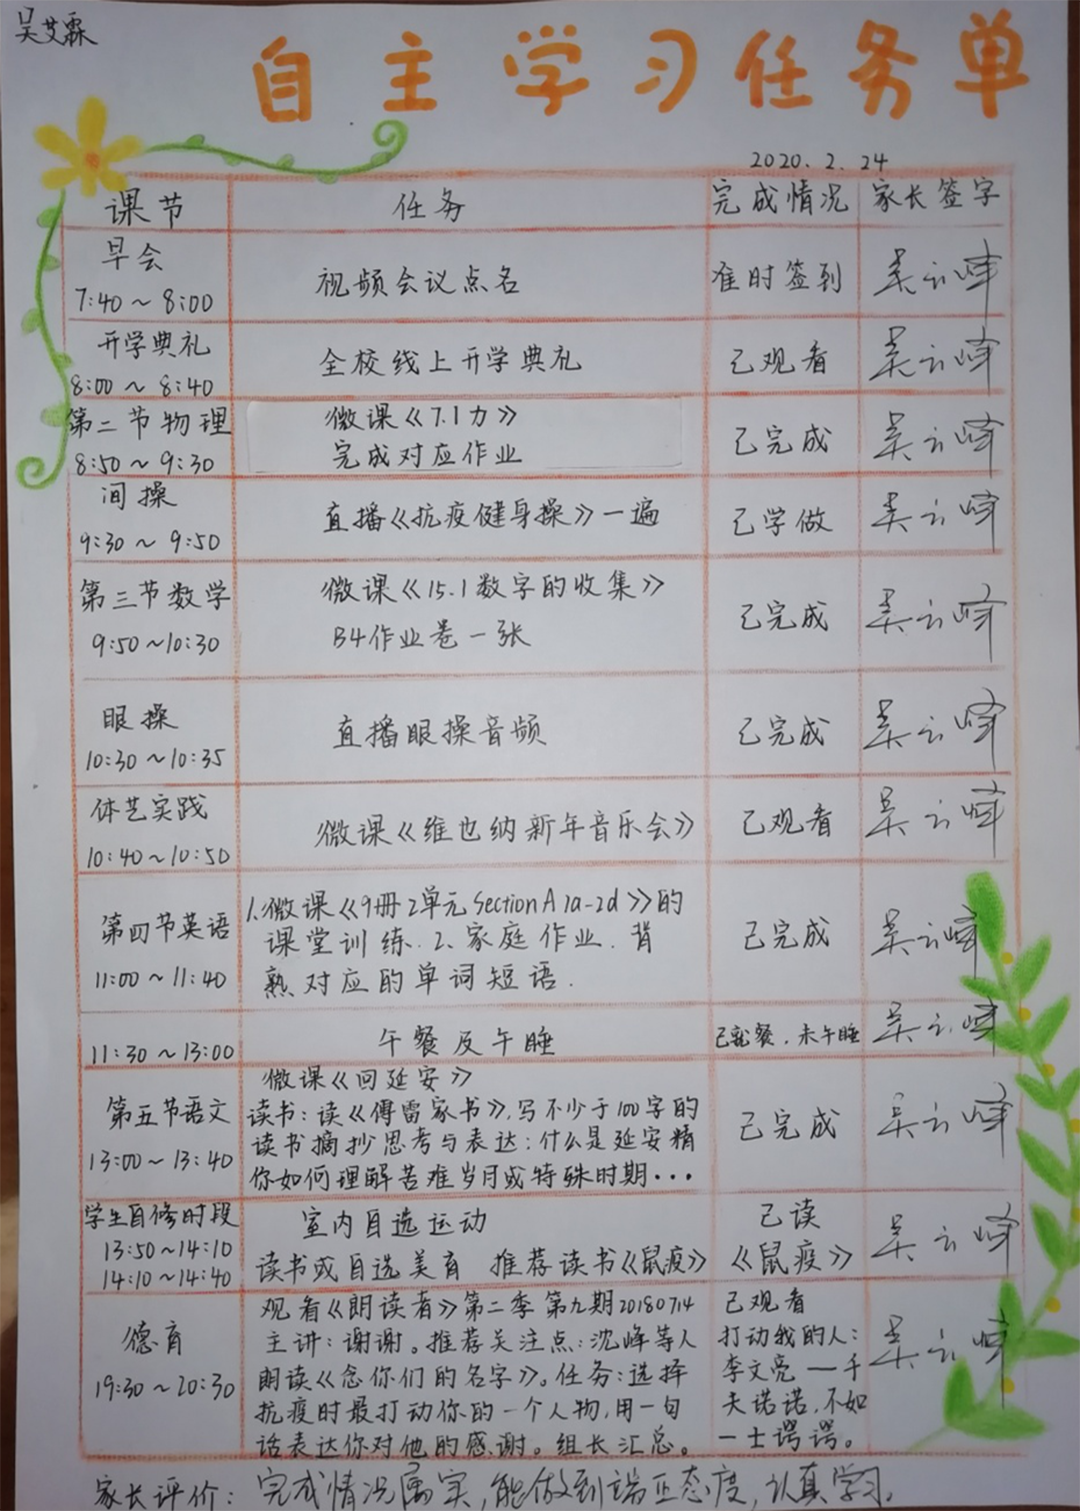 吴艾霖
自主学习任务单
2020.2.24
课节 任务 完成情况 家长签字
早会
7:40～8:00
视频会议点名
准时签到
吴云峰
开学典礼
8:00～8:40
全校线上开学典礼
已观看
吴云峰
第二节物理
8:50～9:30
微课《7.1力》
完成对应作业
已完成
吴云峰
间操
9:30～9:50
直播《抗疫健身操》一遍
已学做
吴云峰
第三节数学
9:50～10:30
微课《15.1数字的收集》
B4作业卷一张
已完成
吴云峰
眼操
10:30～10:35
直播眼操音频
已完成
吴云峰
体艺实践
10:40～10:50
微课《维也纳新年音乐会》
已观看
吴云峰
第四节英语
11:00～11:40
1.微课《9册2单元SectionA 2a-2d》的
课堂训练.2.家庭作业.背
熟对应的单词短语.
已完成
吴云峰
11:30～13:00
午餐及午睡
已就餐.未午睡
吴云峰
第五节语文
13:00～13:40
微课《回延安》
读书:读《傅雷家书》,写不少于100字的
读书摘抄思考与表达:什么是延安精
你如何理解苦难岁月或特殊时期...
已完成
吴云峰
学生自修时段
13:50～14:10
14:10～14:40
室内自选运动
读书或自选美育 推荐读书《鼠疫》
已读
《鼠疫》
吴云峰
德育
19:30～20:30
观看《朗读者》第二季第九期20180714
主讲:谢谢。推荐关注点:沈峰等人
朗读《念你们的名字》。任务:选择
抗疫时最打动你的一个人物,用一句
话表达你对他的感谢。组长汇总。
已观看
打动我的人:
李文亮—千
夫诺诺,不如
一士谔谔。
吴云峰
家长评价:完成情况属实,能做到端正态度,认真学习.